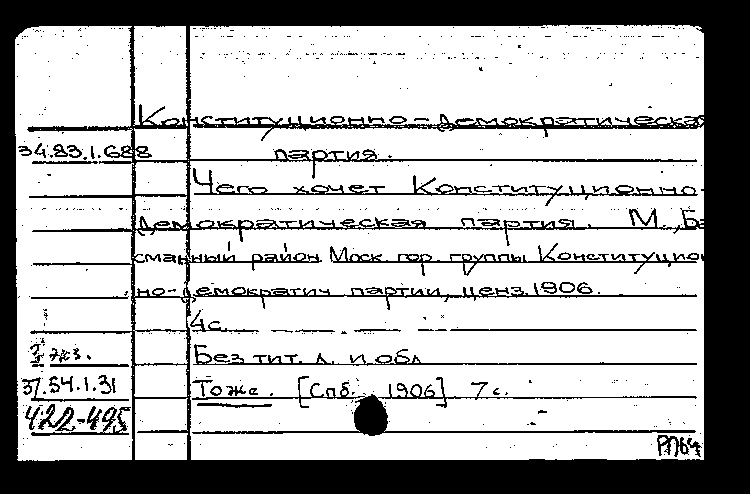 Конституционно-демократическая
34.83.1.688 партия.
Чего хочет Конституционно-
демократическая партия. М., Ба
сманный район Моск. гор. группы Конституцион
но-демократич партии, ценз. 1906.
4с.
3 экз. Без тит. л. и обл
37.54.1.31 То же. [Спб. 1906] 7 с.
422-495
РП64